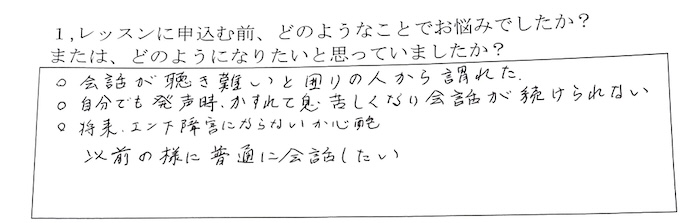 1,レッスンに申込む前、どのようなことでお悩みでしたか?
または、どのようになりたいと思っていましたか?
○ 会話が聴き難いと困りの人から謂れた.
○ 自分でも発声時.かすれて息苦しくなり会話が続けられない
○ 将来.エンド障害にならないか心配
以前の様に普通に会話したい